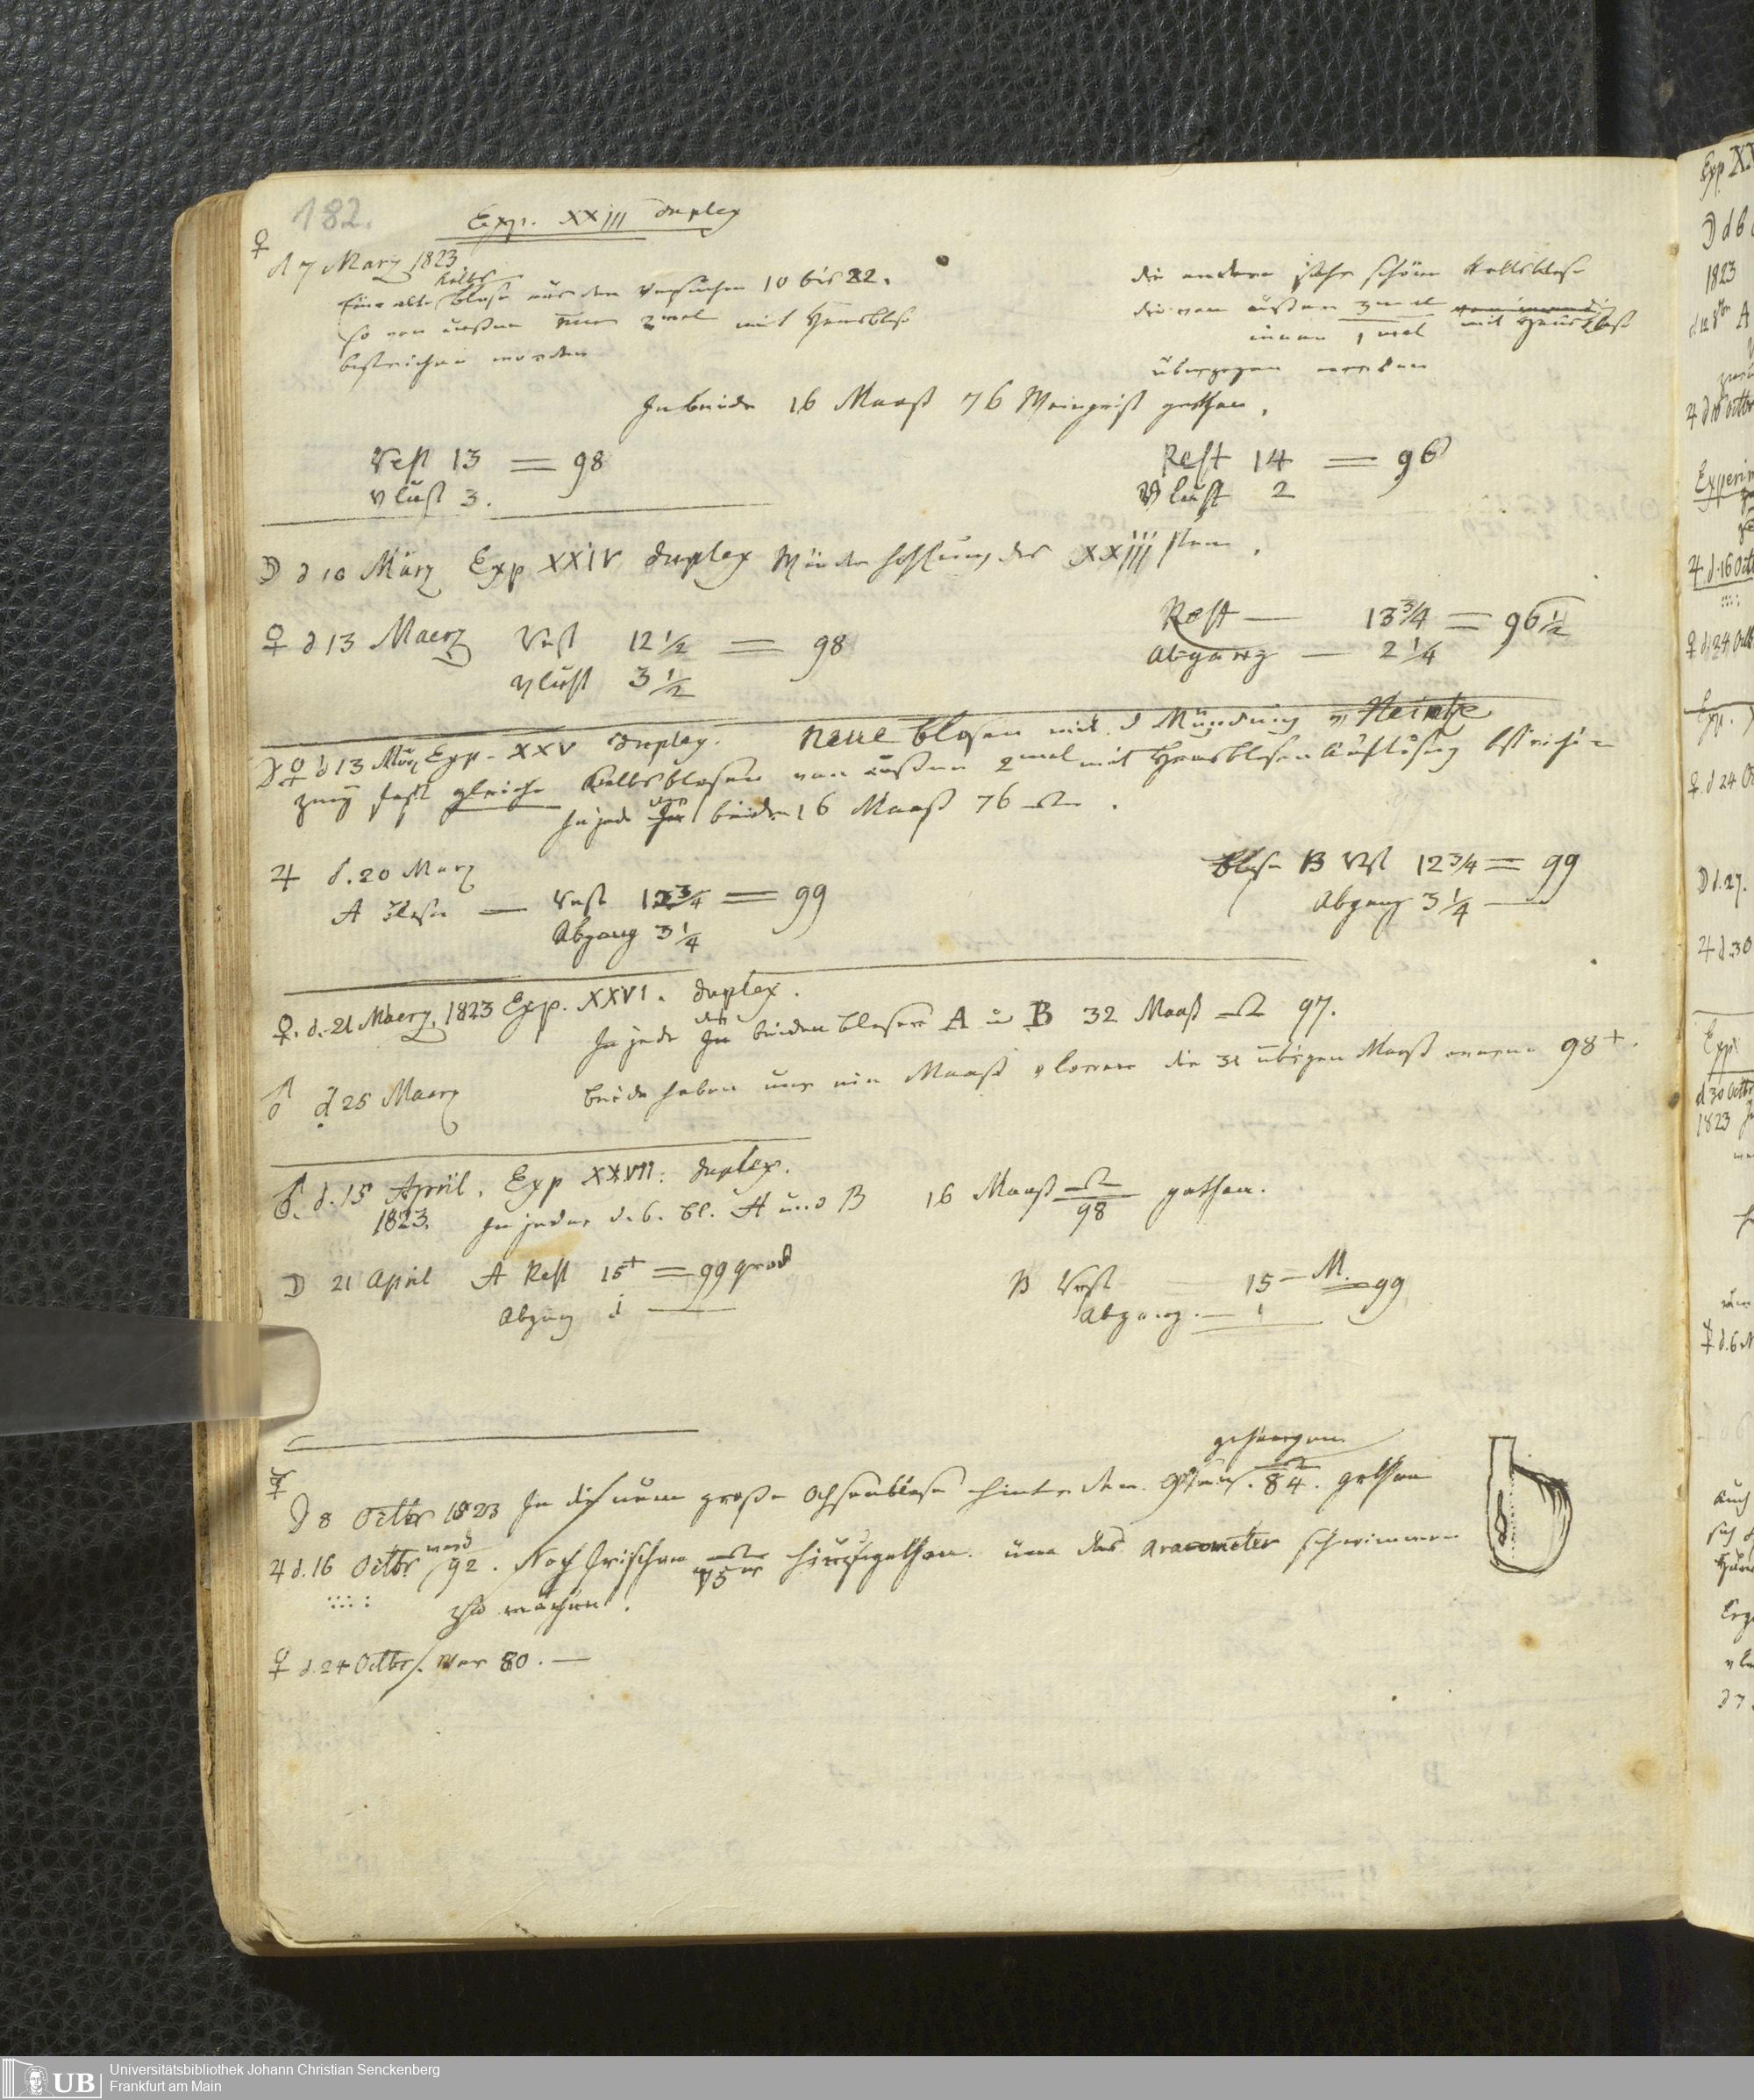 182.
Exp. XXIII duplex
♀ d 7 Marz 1823
Eine alte Kalbs blase aus den Versuchen 10 bis 22.
so von außen nur 2 mal mit Hausblase
bestrichen worden
die andere sehr schöne Kalbsblase
die von außen 3 mal
innen 1 mal mit Hausblase
überzogen worden
In beide 16 Maaß 76 Weingeist gethan.
Rest 13 = 98
Vlust 3.
Rest 14 = 96
Vlust 2
☽ d 10 März Exp XXIV duplex Wiederhohlung des XXIII sten.
♀ d 13 Maerz Rest 12 1/2 = 98
Vlust 3 1/2
Rest — 13 3/4 = 96 1/2
Abgang — 2 1/4
♀ d 13 März Exp. XXV duplex. Neue blasen mit d Mündung
zwey fast gleiche Kalbsblasen von außen 2 mal mit Hausblasen Auflösung bestrichen
In jede der beiden 16 Maaß 76
♃ d. 20 Marz
A Blase — Rest 12 3/4 = 99
Abgang 3 1/4
Blase B Rest 12 3/4 = 99
Abgang 3 1/4
♀. d. 21 Maerz. 1823 Exp. XXVI. duplex.
In jede der beiden blasen A u B 32 Maaß 97.
♂ d 25 Maerz beide haben nur ein Maaß vloren die 31 übrigen Maaß waren 98+.
♂. d. 15 April. Exp XXVII. duplex.
1823. In jeder d. b. Bl. A und B 16 Maaß 98 gethan.
☽ 21 April A Rest 15+ = 99 grad
Abgang 1
B Rest 15 — M. 99
Abgang. — 1
gehangen
d 8 Octbr 1823 In die neue große Ochsenblase hinter dem 84. gethan
♃ d. 16 Octbr ward 92. Noch frischen 75 hinzugethan. um das araeometer schwimmen
:::: zu machen.
♀ d. 24 Octbr. War 80. —
UB
Universitätsbibliothek Johann Christian Senckenberg
Frankfurt am Main